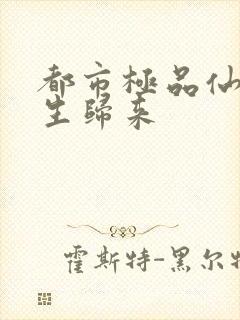 都市極品仙
生歸来
霍斯特-黑尔特